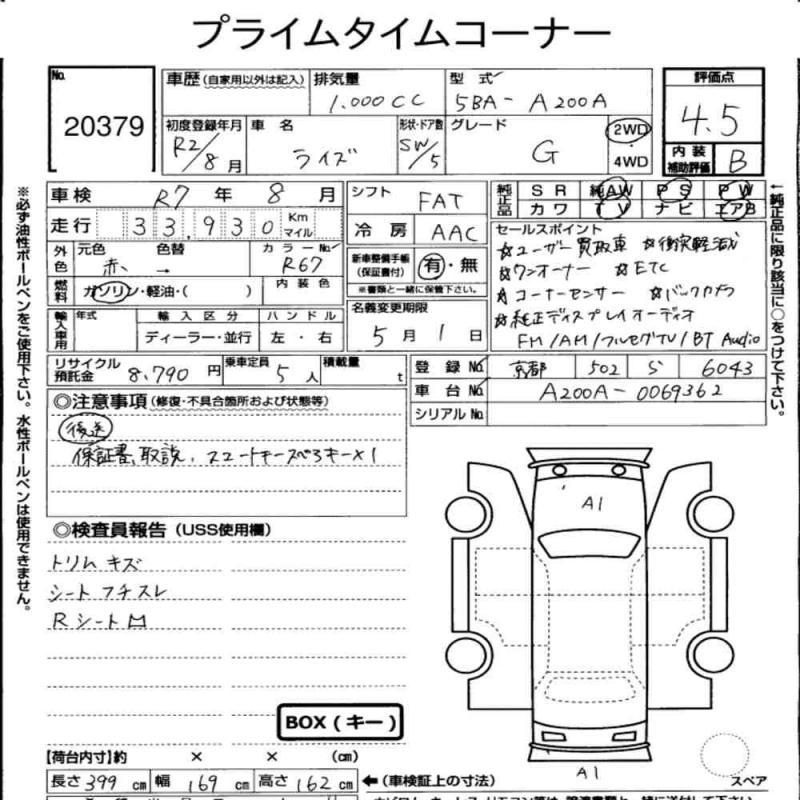 プライムタイムコーナー
No. 20379
車歴 (自家用以外は記入)
排気量 1.000CC
型式 5BA- A200A
評価点 4.5
初度登録年月 R2/8月
車名 ライズ
形状・ドア数 SW/5
グレード G
2WD
4WD
内装補助評価 B
車検 R7年 8月
シフト FAT
純正品 SR 純AW PS PW
カワ TV ナビ エアB
走行 33,930 Km マイル
冷房 AAC
セールスポイント
☆ユーザー買取車 ☆衝突軽減
☆ワンオーナー ☆ETC
☆コーナーセンサー ☆バックカメラ
☆純正ディスプレイオーディオ
FM/AM/フルセグTV/BT Audio
外色 元色 赤 色替 → カラーNo. R67
新車整備手帳(保証書付) 有・無
※書類と一緒に保管下さい。
燃料 ガソリン・軽油・( ) 内装色
名義変更期限 5月 1日
輸入車用 年式 輸入区分 ハンドル
ディーラー・並行 左・右
リサイクル預託金 8.790円
乗車定員 5人
積載量 t
登録No. 京都 502 S 6043
車台No. A200A-0069362
シリアルNo.
◎注意事項 (修復・不具合箇所および状態等)
後送
保証書、取説、スマートキースペアキー×1
◎検査員報告 (USS使用欄)
トリム キズ
シート フチスレ
Rシート
A1
BOX (キー)
A1
スペア
【荷台内寸】約 × × (cm)
長さ399cm 幅169cm 高さ162cm
←(車検証上の寸法)
※必ず油性ボールペンをご使用下さい。水性ボールペンは使用できません。
←純正品に限り該当に○をつけて下さい。